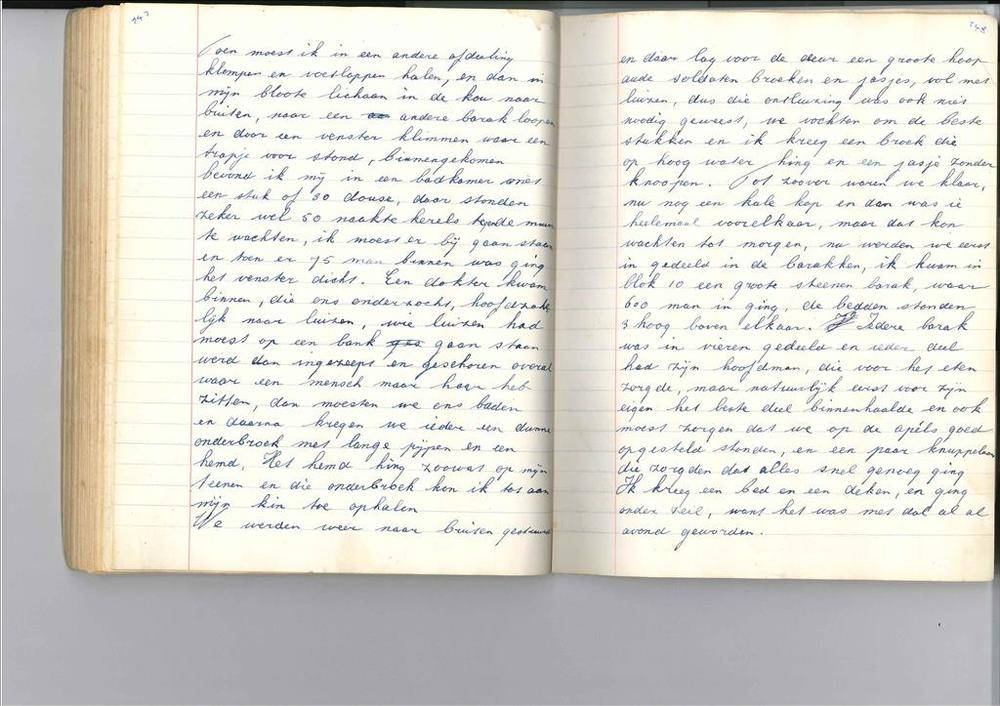 247
Toen moest ik in een andere afdeeling
klompen en voetlappen halen, en dan in
mijn bloote lichaan in de kou naar
buiten, naar een andere barak loopen
en door een venster klimmen waar een
trapje voor stond, binnengekomen
bevond ik mij in een badkamer met
een stuk of 30 douse, daar stonden
zeker wel 50 naakte kerels te
te wachten, ik moest er bij gaan staan
en toen er 75 man binnen was ging
het venster dicht. Een dokter kwam
binnen, die ons onderzocht, hoofdzake
lijk naar luizen, wie luizen had
moest op een bank gaan staan
werd dan ingezeept en geschoren overal
waar een mensch maar haar heb
zitten, dan moesten we ons baden
en daarna kregen we iedere een dunne
onderbroek met lange pijpen en een
hemd. Het hemd hing zoowat op mijn
teenen en die onderbroek kon ik tot aan
mijn kin toe ophalen
We werden weer naar buiten gestuurd
248
en daar lag voor de deur een groote hoop
oude soldaten broeken en jasjes, vol met
luizen, dus die ontluizing was ook niet
nodig geweest, we vochten om de beste
stukken en ik kreeg een broek die
op hoog water hing en een jasje zonder
knoopen. Tot zoover waren we klaar,
nu nog een kale kop en dan was ie
heelemaal voorelkaar, maar dat kon
wachten tot morgen, nu werden we eerst
in gedeeld in de barakken, ik kwam in
blok 10 een groote steenen barak, waar
600 man in ging, de bedden stonden
3 hoog boven elkaar. Iedere barak
was in vieren gedeeld en ieder deel
had zijn hoofdman, die voor het eten
zorgde, maar natuurlijk eerst voor zijn
eigen het beste deel binnenhaalde en ook
moest zorgen dat we op de apéls goed
opgesteld stonden, en een paar knuppelaars
die zorgden dat alles snel genoeg ging
Ik kreeg een bed en een deken, en ging
onder zeil, want het was met dat al al
avond geworden.